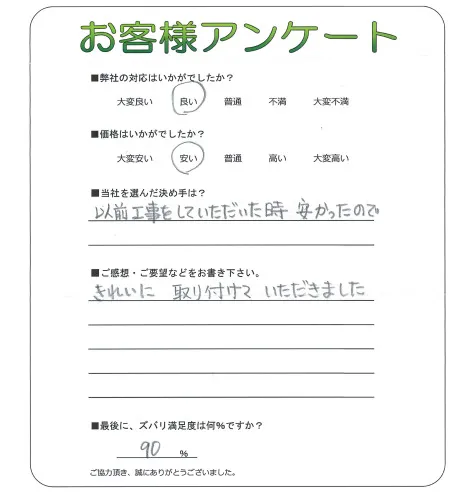 お客様アンケート
■弊社の対応はいかがでしたか？
大変良い 良い 普通 不満 大変不満
■価格はいかがでしたか？
大変安い 安い 普通 高い 大変高い
■当社を選んだ決め手は？
以前工事をしていただいた時 安かったので
■ご感想・ご要望などをお書き下さい。
きれいに 取り付けて いただきました
■最後に、ズバリ満足度は何%ですか？
90 %
ご協力頂き、誠にありがとうございました。